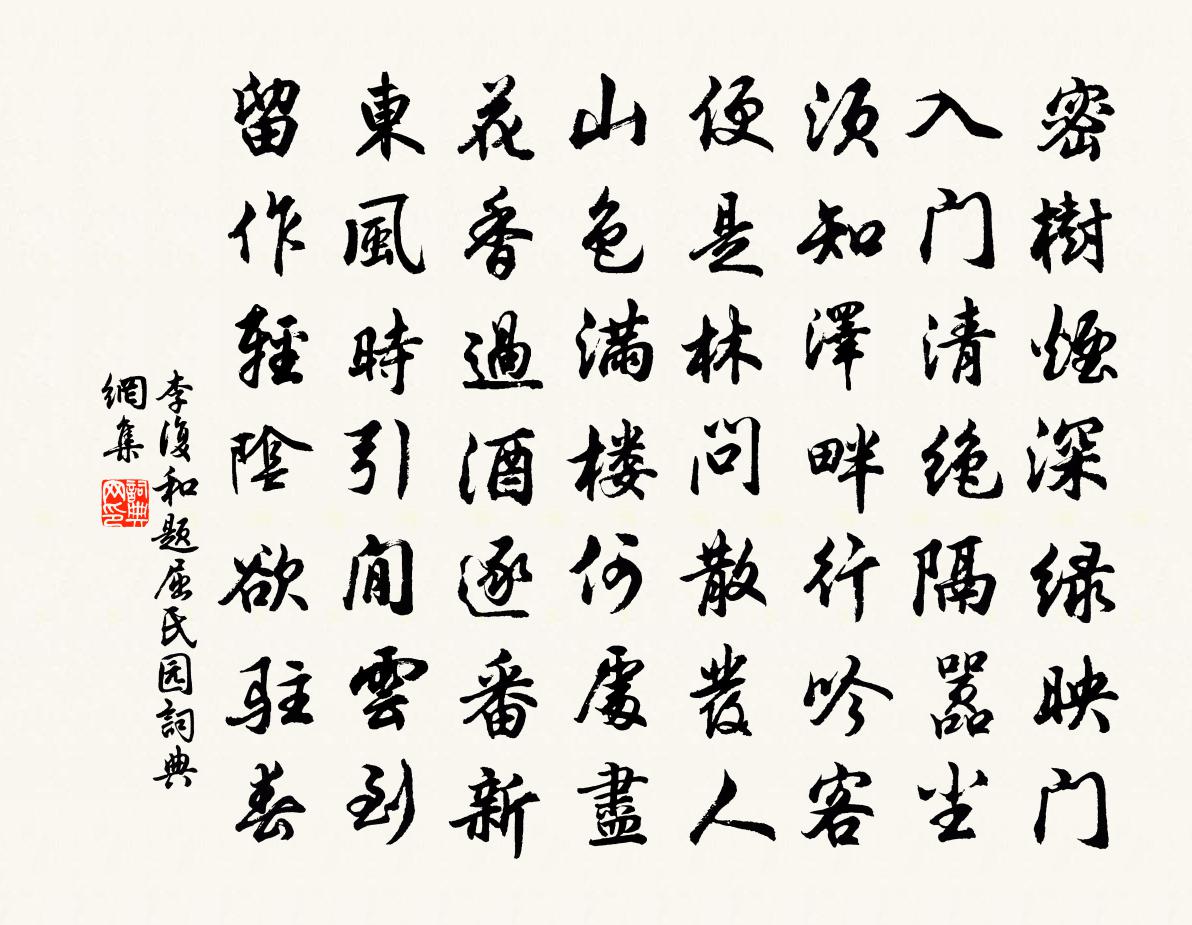 密樹煙深緑映门
入门清绝隔嚣尘
须知澤畔行吟客
便是林问散发人
山色满楼何處盡
花香過酒逐番新
東風時引閒雲到
留作輕陰欲駐春
李復和题屈氏园詞典
網集
詞典
网印